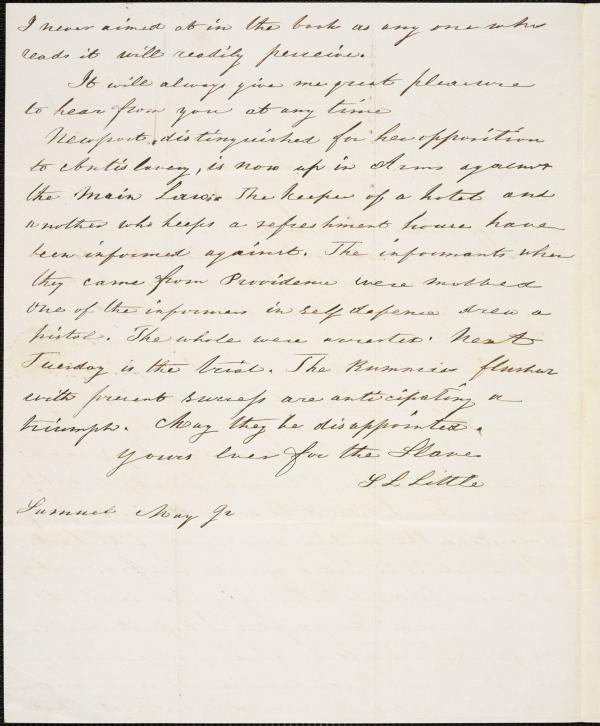 I never aimed at in the book as any one who
reads it will readily perceive.
It will always give me great pleasure
to hear from you at any time
Newport, distinguished for her opposition
to Antislavery, is now up in Arms against
the Main Law. The keeper of a hotel and
another who keeps a refreshment house have
been informed against. The informants when
they came from Providence were mobbed
One of the informers in self defence drew a
pistol. The whole were arrested. Next
Tuesday is the trial. The Rummies flushed
with present success are anticipating a
triumph. May they be disappointed.
Yours ever for the Slave
S L Little
Samuel May Jr